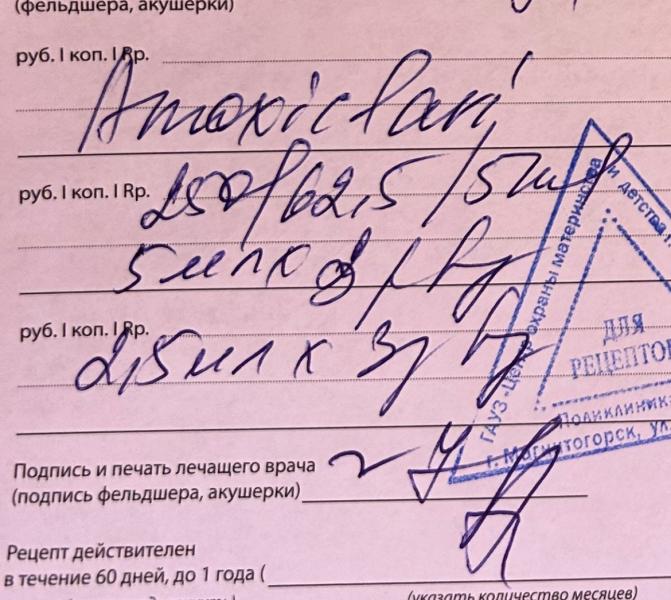 (фельдшера, акушерки)
руб. | коп. | Rp.
Amoxiclavi
руб. | коп. | Rp.
250/62,5/5ml
5 мл х 3 р/
руб. | коп. | Rp.
2,5 мл х 3р
ГАУЗ «Центр охраны материнства и детства
ДЛЯ
РЕЦЕПТО
Поликлиника
г. Магнитогорск, ул.
Подпись и печать лечащего врача
(подпись фельдшера, акушерки)
Рецепт действителен
в течение 60 дней, до 1 года (
(указать количество месяцев)